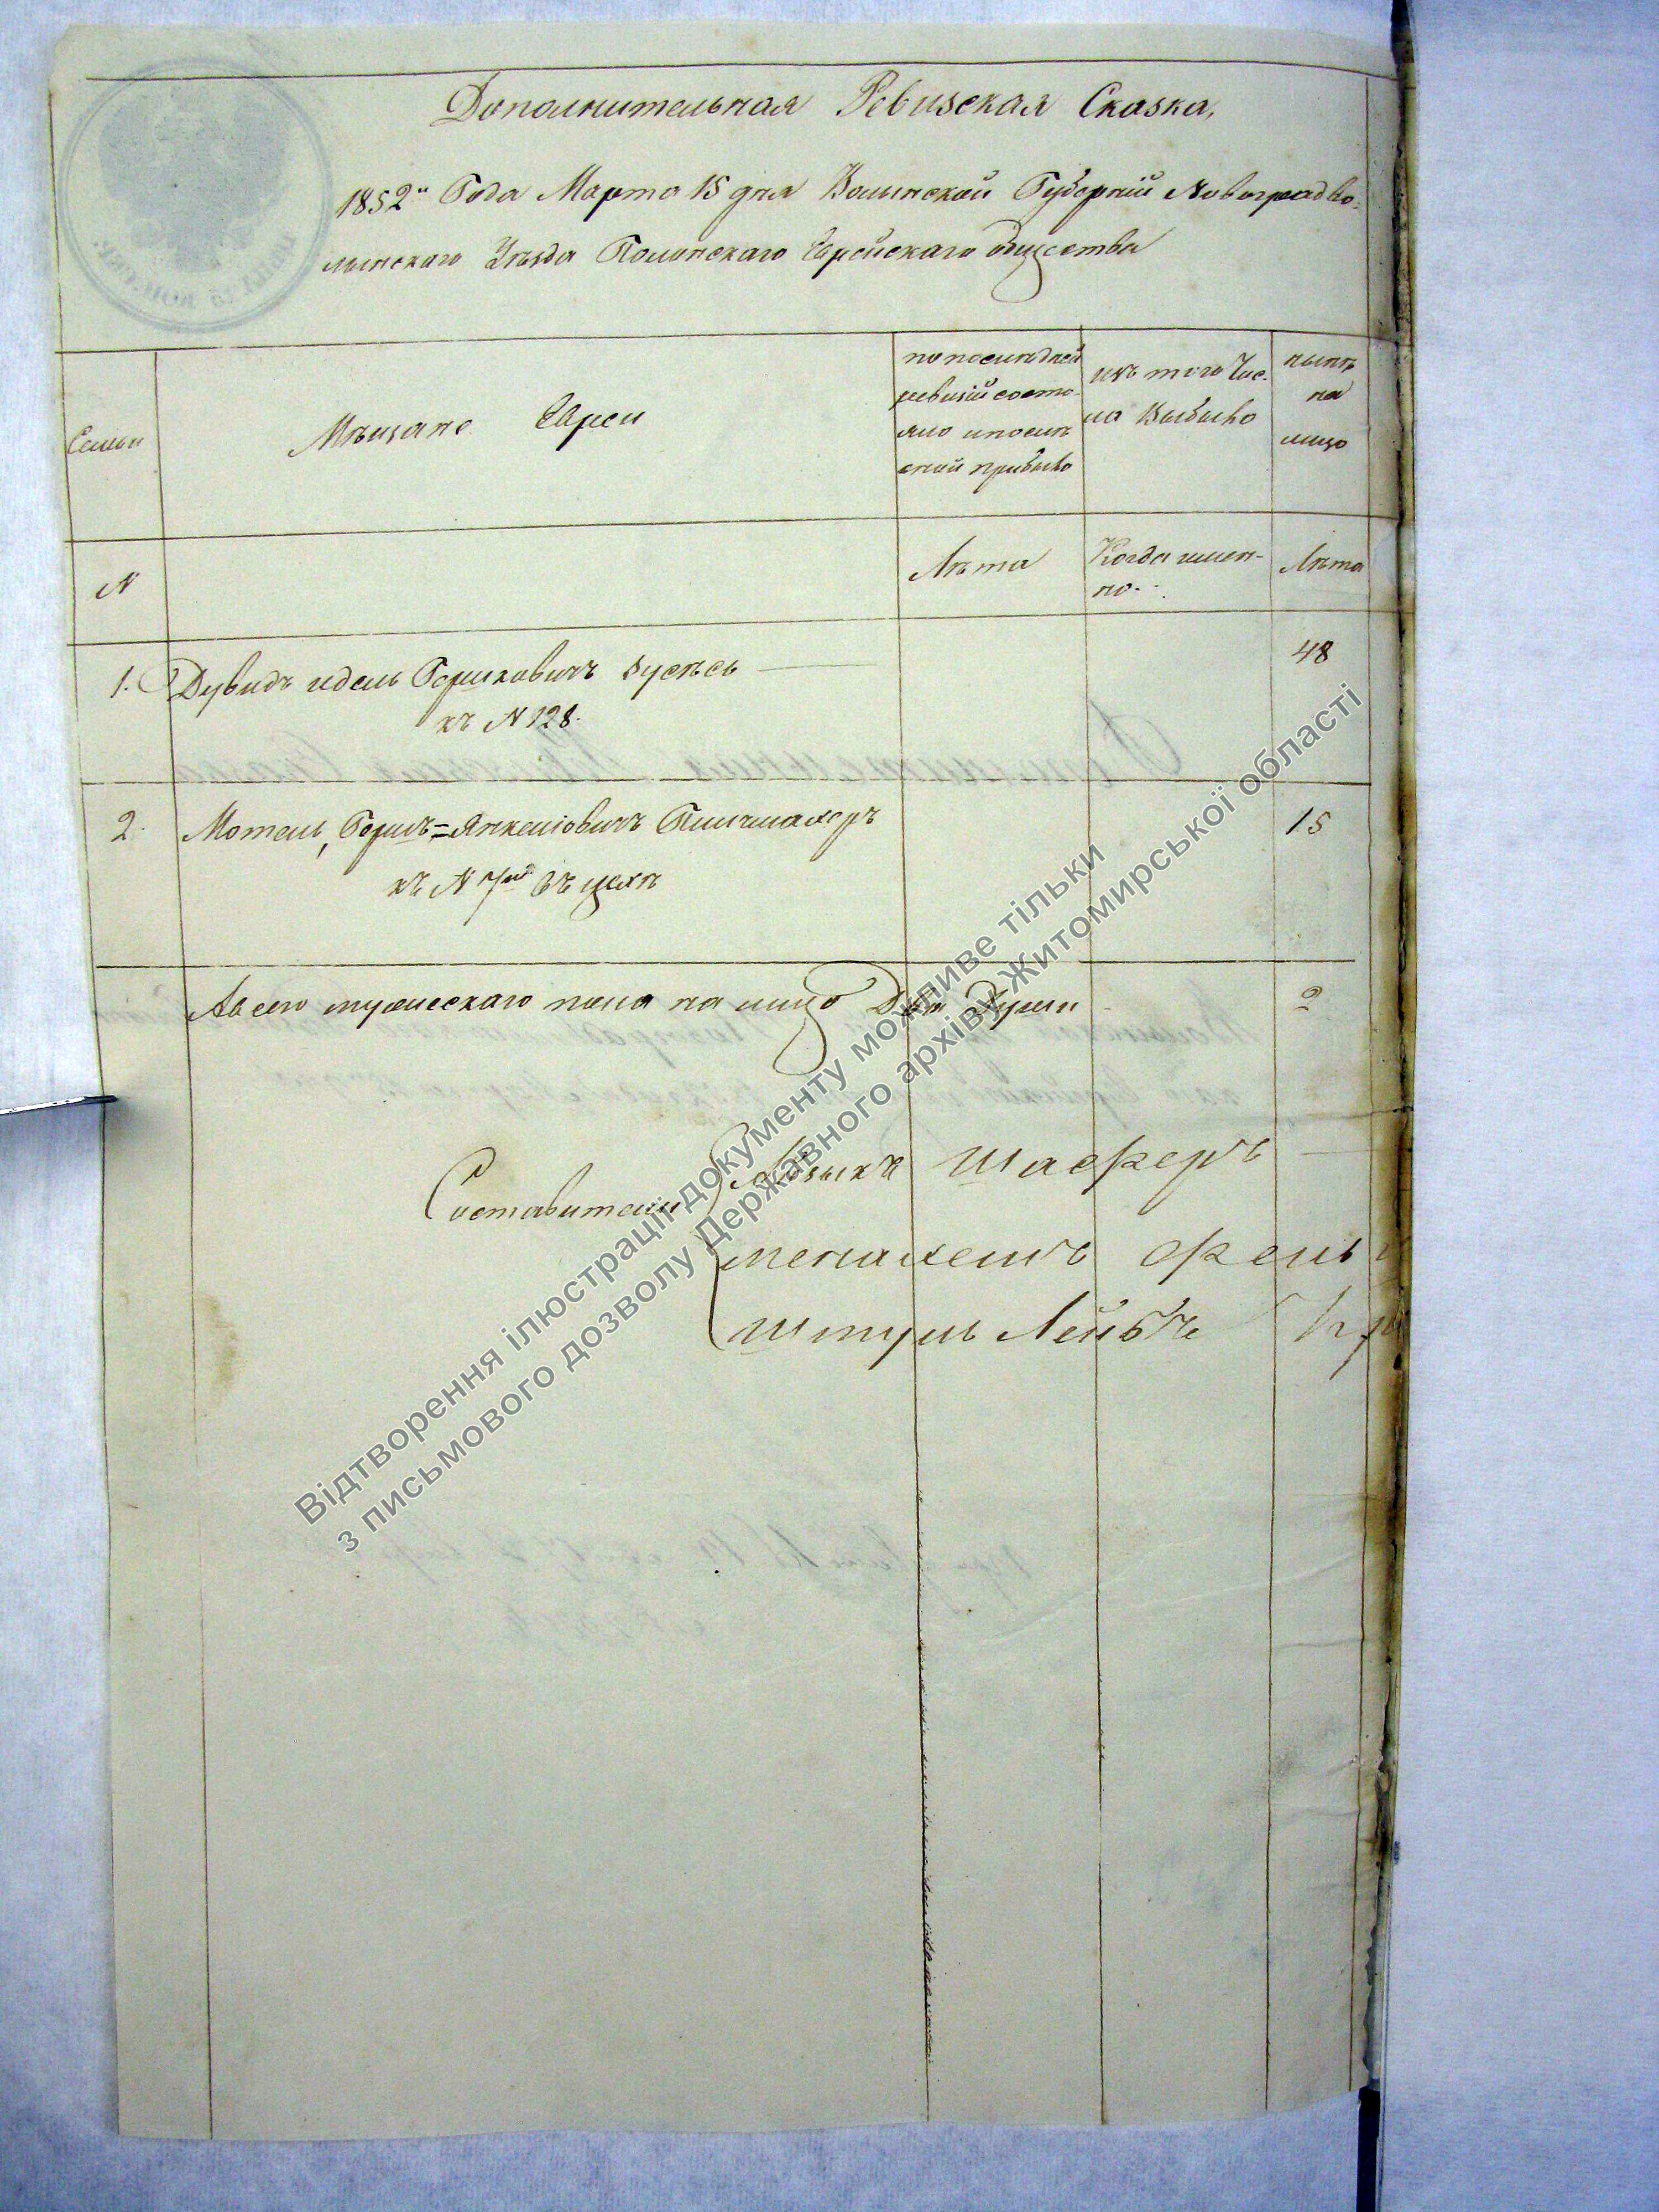 Дополнительная Ревизская Сказка,
1852го Года Марта 15 дня Волынской Губерніи Новоградво-
лынскаго Уѣзда Полонскаго Еврейскаго общества
Семьи
Мѣщане Евреи
по послѣдней
ревизіи состо-
яло и послѣ
оной прибыло
изъ того Чис-
ла Выбыло
нынѣ
на
лицо
N
Лѣта
Когда имен-
но
Лѣта
1. Дувидъ идель Гершковичъ
къ N 128.
48
2. Мотель, Гершъ=Янкелiовичъ
къ N 7му въ цехѣ
15
Авсего мужескаго пола на лицо Двѣ Души
2
Составители
Айзыкъ Шаферъ
менахемъ
Шмуль Лейбъ
Відтворення ілюстрації документу можливе тільки
з письмового дозволу Державного архіву Житомирської області